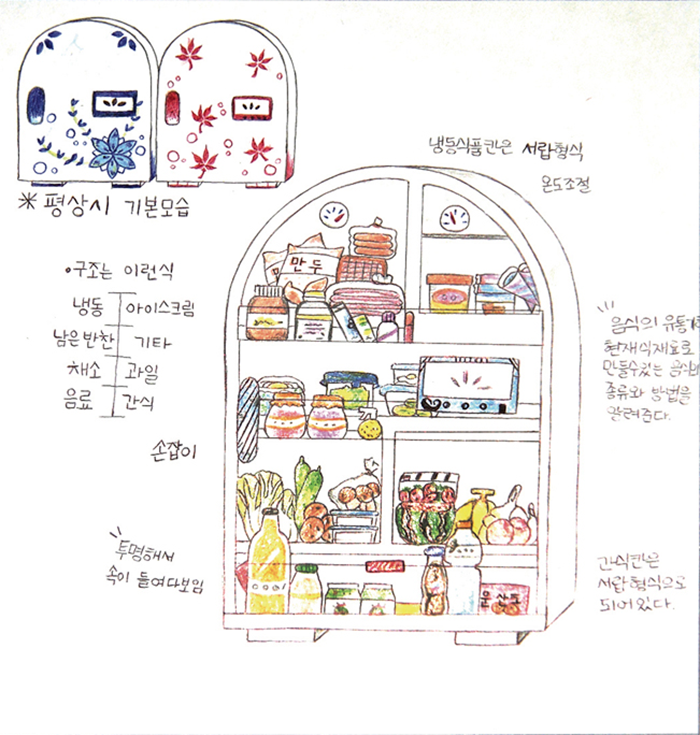 냉동식품칸은 서랍형식
온도조절
※ 평상시 기본모습
•구조는 이런식
냉동 아이스크림
남은반찬 기타
채소 과일
음료 간식
만두
음식의 유통기
현재식재료로
만들수있는 음식의
종류와 방법을
알려준다.
손잡이
투명해서
속이 들여다보임
간식칸은
서랍형식으로
되어있다.